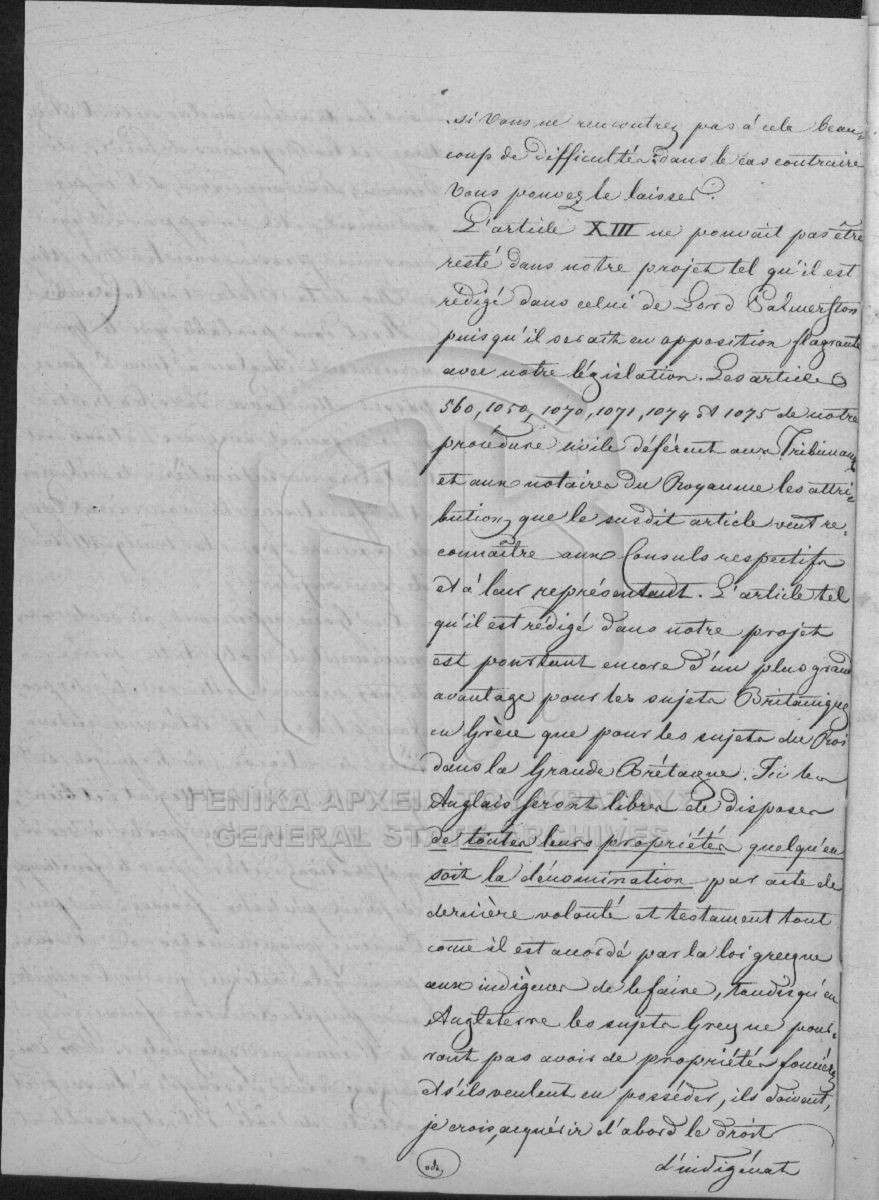 si vous ne rencontrez pas à cela beau-
coup de difficultés: dans le cas contraire
vous pouvez le laisser.
L'article XIII ne pouvait pas être
resté dans notre projet tel qu'il est
rédigé dans celui de Lord Palmerston
puisqu'il serait en opposition flagrante
avec notre législation. Les articles
560, 1050, 1070, 1071, 1074 et 1075 de notre
procédure civile défèrent aux Tribunaux
et aux notaires du Royaume les attri-
butions que le susdit article veut re-
connaître aux Consuls respectifs
et à leur représentant. L'article tel
qu'il est rédigé dans notre projet
est pourtant encore d'un plus grand
avantage pour les sujets Britaniques
en Grèce que pour les sujets du Roi
dans la Grande Brétaigne. Ici les
Anglais seront libres de disposer
de toutes leurs propriétés quelqu'en
soit la dénomination par acte de
dernière volonté et testament tout
come il est acordé par la loi grecque
aux indigènes de le faire, tandis qu'en
Angleterre les sujets Grecs ne pour-
ront pas avoir de propriétés foncières
et s'ils veulent en posséder, ils doivent,
je crois, acquérir d'abord le droit
d'indigénat
ΓΕΝΙΚΑ ΑΡΧΕΙΑ ΤΟΥ ΚΡΑΤΟΥΣ
GENERAL STATE ARCHIVES